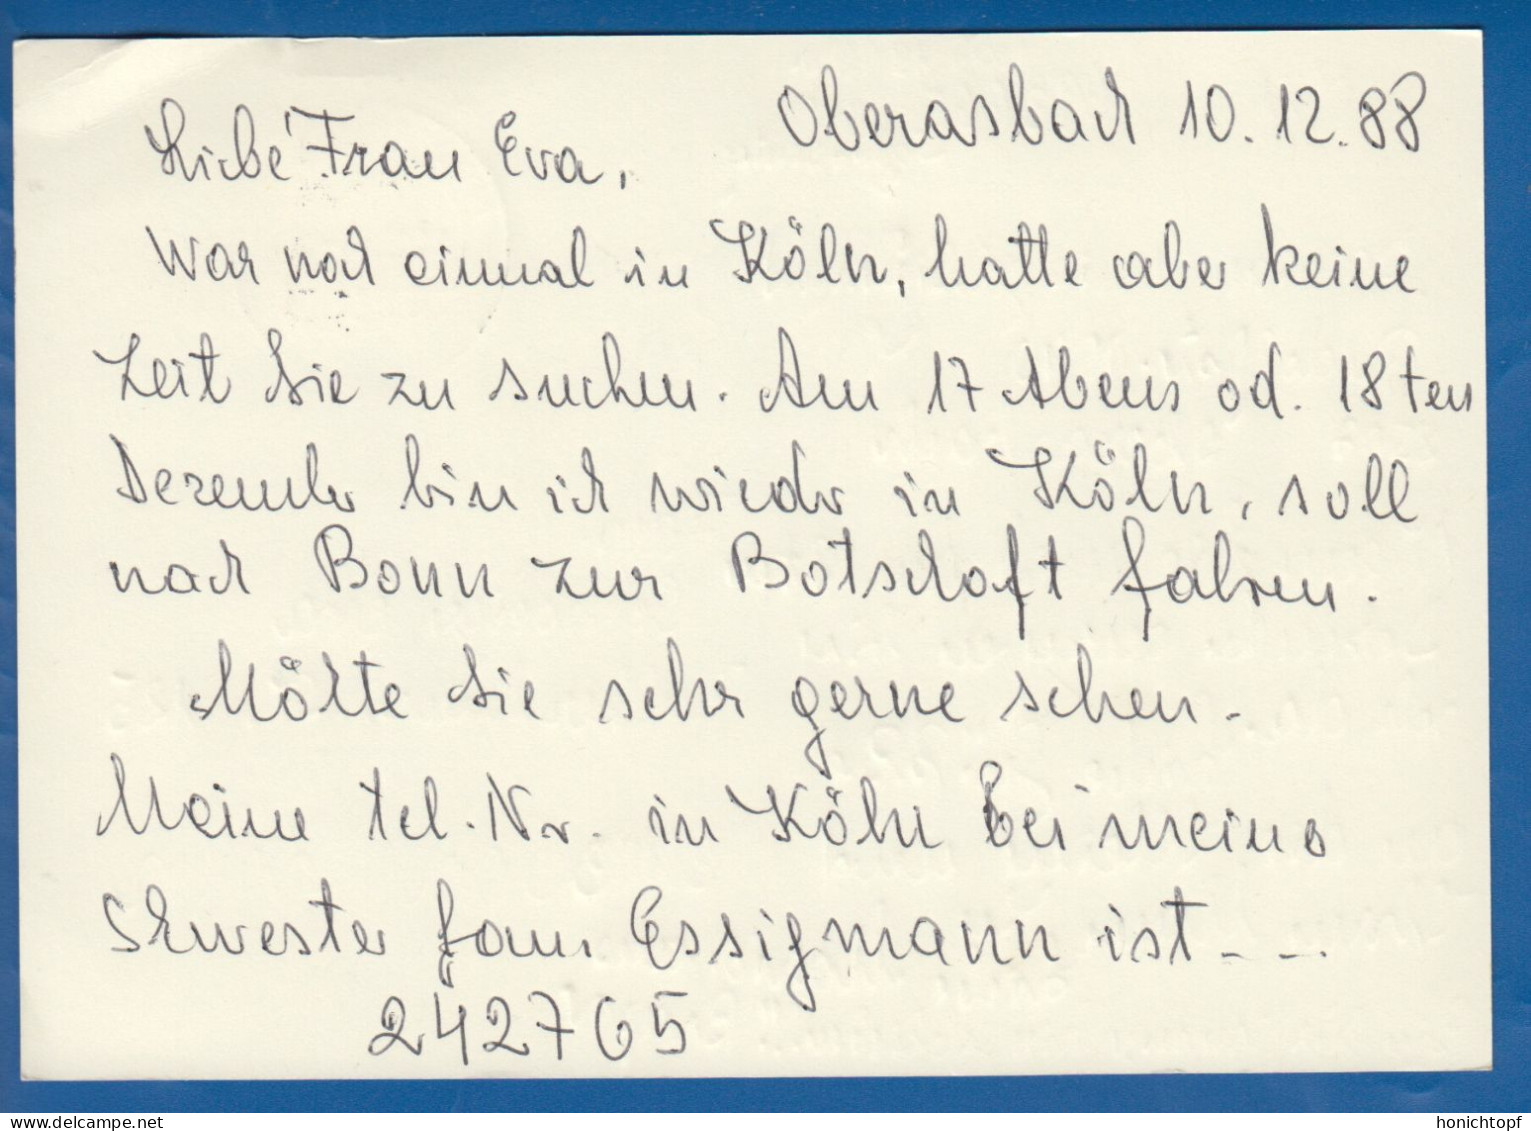 Oberasbach 10.12.88
Liebe Frau Eva,
War noch einmal in Köln, hatte aber keine
Zeit Sie zu suchen. Am 17 Abens od. 18ten
Dezember bin ich wieder in Köln, soll
nach Bonn zur Botschaft fahren.
Möchte Sie sehr gerne sehen.
Meine tel. Nr. in Köln bei meine
Schwester fam. Essigmann ist - - -
242765
delcampe.net
honichtopf